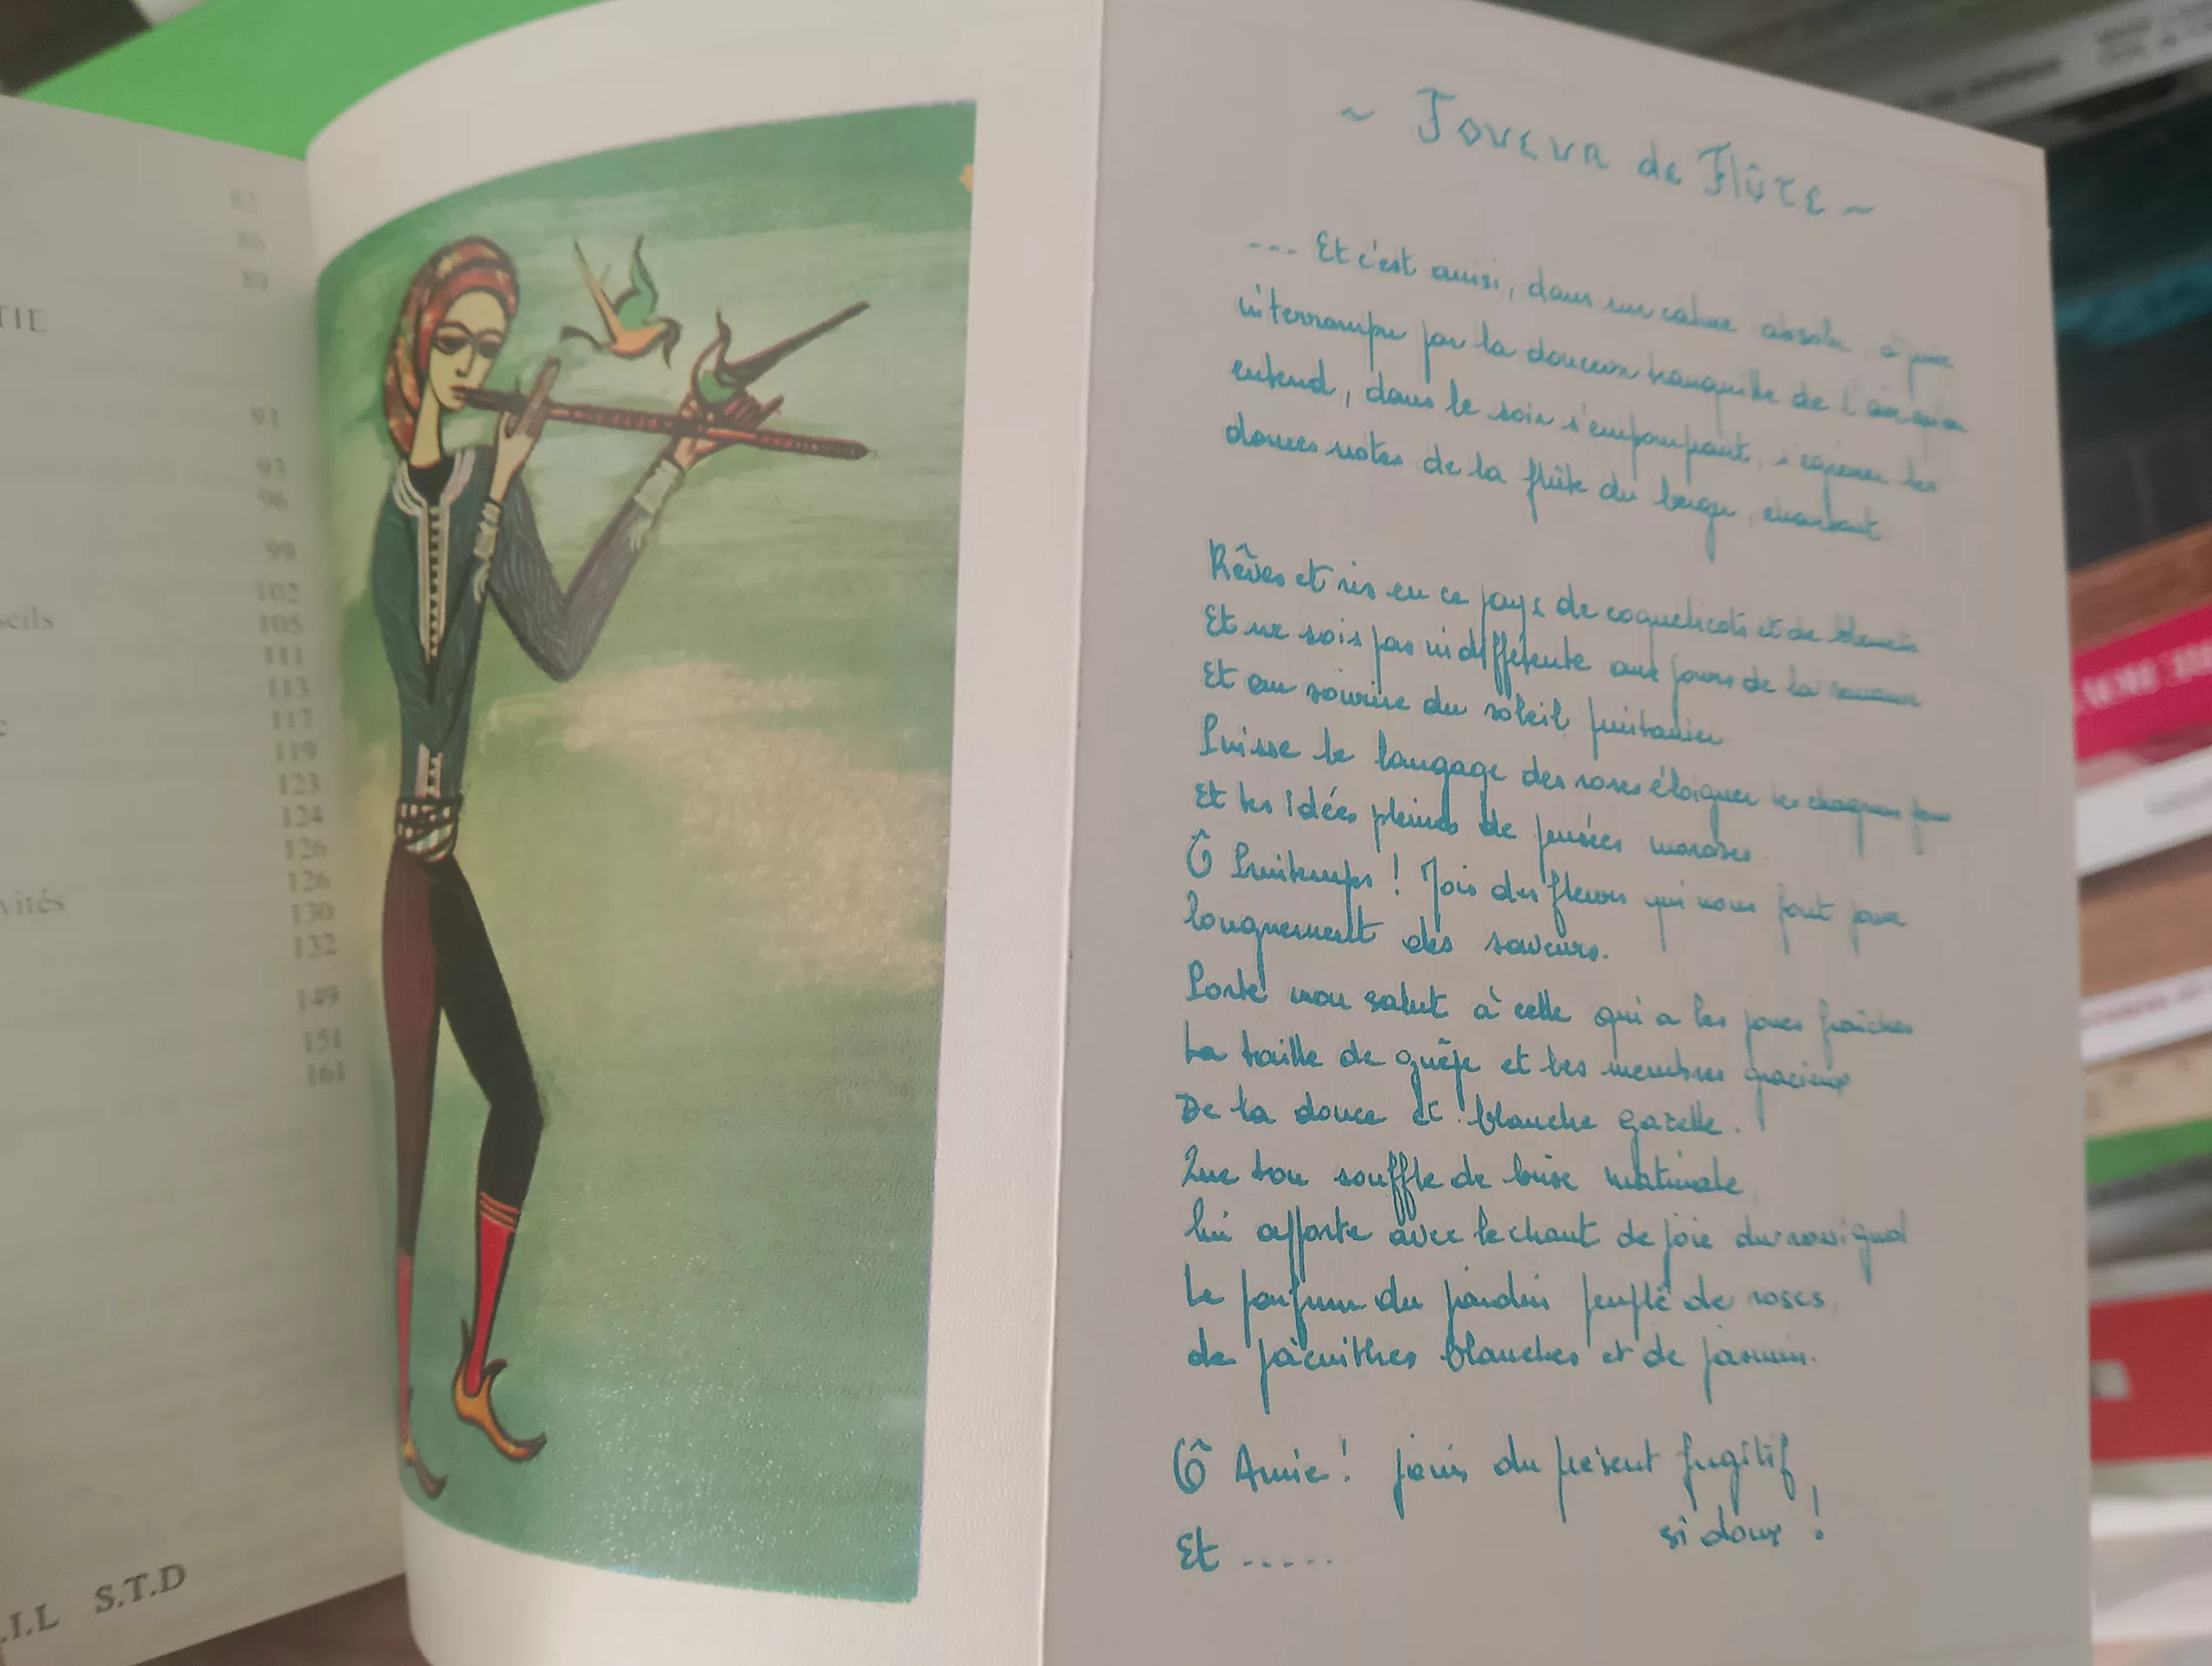 82
86
89
TIE
91
93
96
99
102
seils 105
111
113
117
119
123
124
126
126
vités 130
132
149
151
161
.I.L S.T.D
~ Joueur de Flûte ~
--- Et c'est ainsi, dans un calme absolu, à peine
interrompu par la douceur tranquille de l'air qu'on
entend, dans le soir s'empourprant, s'égrener les
douces notes de la flûte du berger, chantant
Rêves et ris en ce pays de coquelicots et de
Et ne sois pas indifférente aux jours de la semaine
Et au sourire du soleil printanier
Puisse le langage des roses éloigner les chagrins
Et les idées pleines de pensées moroses.
Ô Printemps ! Mois des fleurs qui nous font jouir
longuement des saveurs.
Porte mon salut à celle qui a les joues fraîches
La taille de guêpe et les membres gracieux
De la douce et blanche gazelle.
Que ton souffle de brise matinale,
lui apporte avec le chant de joie du rossignol
Le parfum du jardin peuplé de roses,
de jacinthes blanches et de jasmin.
Ô Amie ! jouis du présent fugitif
si doux !
Et .....